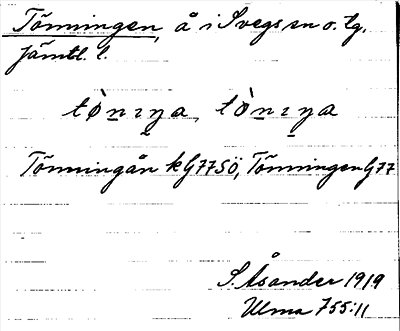 Tönningen, å i Svegs sn o. tg,
Jämtl. l.
tø̀nıŋa, tònıŋa
Tönningån k G77SÖ, Tönningen G77
S. Åsander 1919
Ulma 755:11